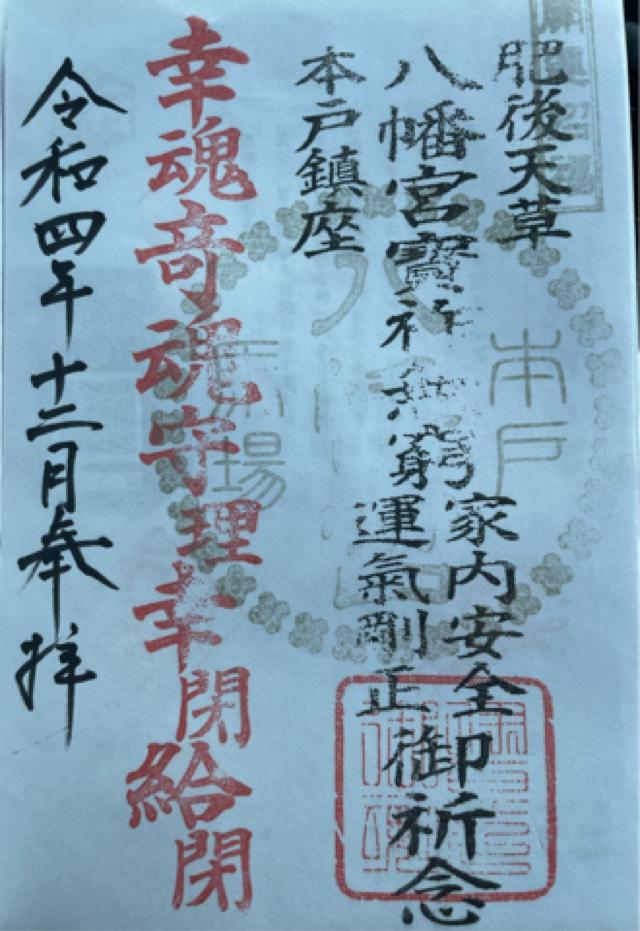 肥後天草
八幡宮寳祚無窮
本戸鎮座
家内安全
運氣剛正
御祈念
幸魂竒魂守理幸閇給閇
令和四年十二月奉拝
本戸
馬場